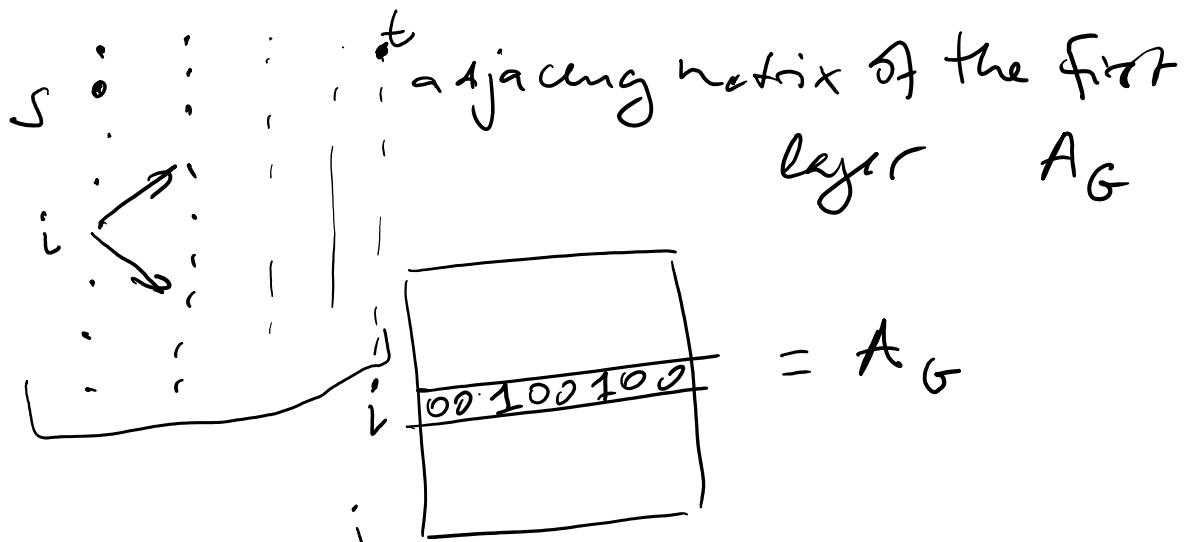 t
adjaceny matrix of the first
s
layer A_G
i
= A_G
i 00100100
i